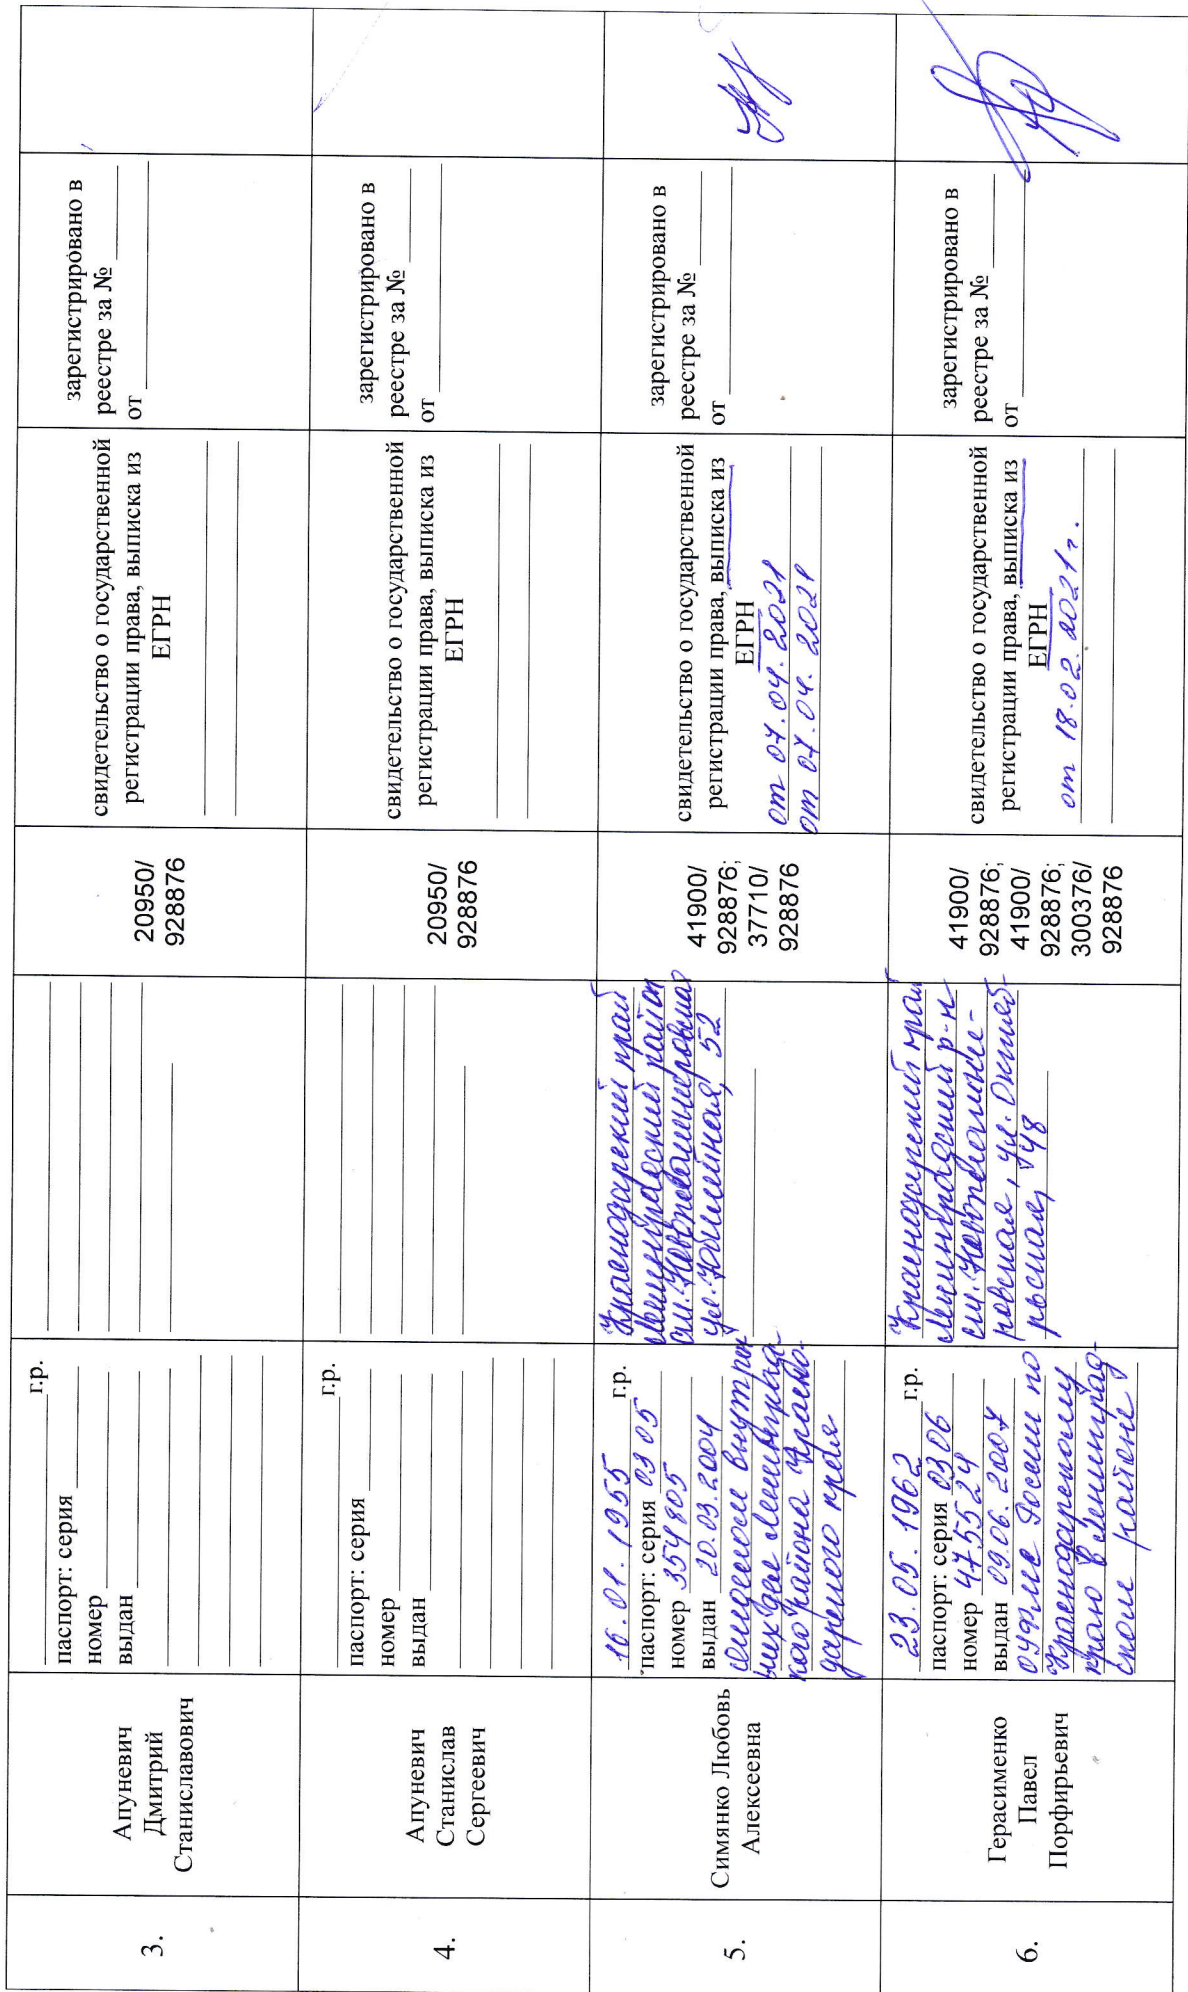 3.
Апуневич
Дмитрий
Станиславович
г.р.
паспорт: серия
номер
выдан
20950/
928876
свидетельство о государственной
регистрации права, выписка из
ЕГРН
зарегистрировано в
реестре за №
от
4.
Апуневич
Станислав
Сергеевич
г.р.
паспорт: серия
номер
выдан
20950/
928876
свидетельство о государственной
регистрации права, выписка из
ЕГРН
зарегистрировано в
реестре за №
от
5.
Симянко Любовь
Алексеевна
16.01.1955 г.р.
паспорт: серия 03 05
номер 354805
выдан 20.03.2004
отделом внутрен
них дел Ленинградс
кого района Красно-
дарского края
Краснодарский край
Ленинградский район
ст. Новоплатнировская
ул. Юбилейная, 52
41900/
928876;
37710/
928876
свидетельство о государственной
регистрации права, выписка из
ЕГРН
от 07.04.2021
от 07.04.2021
зарегистрировано в
реестре за №
от
6.
Герасименко
Павел
Порфирьевич
23.05.1962 г.р.
паспорт: серия 0306
номер 475524
выдан 09.06.2007
ОУФМС России по
Краснодарскому
краю в Ленинград-
ском районе
Краснодарский край
Ленинградский р-н
ст. Новоплатни-
ровская, ул. Октяб-
рьская, 148
41900/
928876;
41900/
928876;
300376/
928876
свидетельство о государственной
регистрации права, выписка из
ЕГРН
от 18.02.2021г.
зарегистрировано в
реестре за №
от